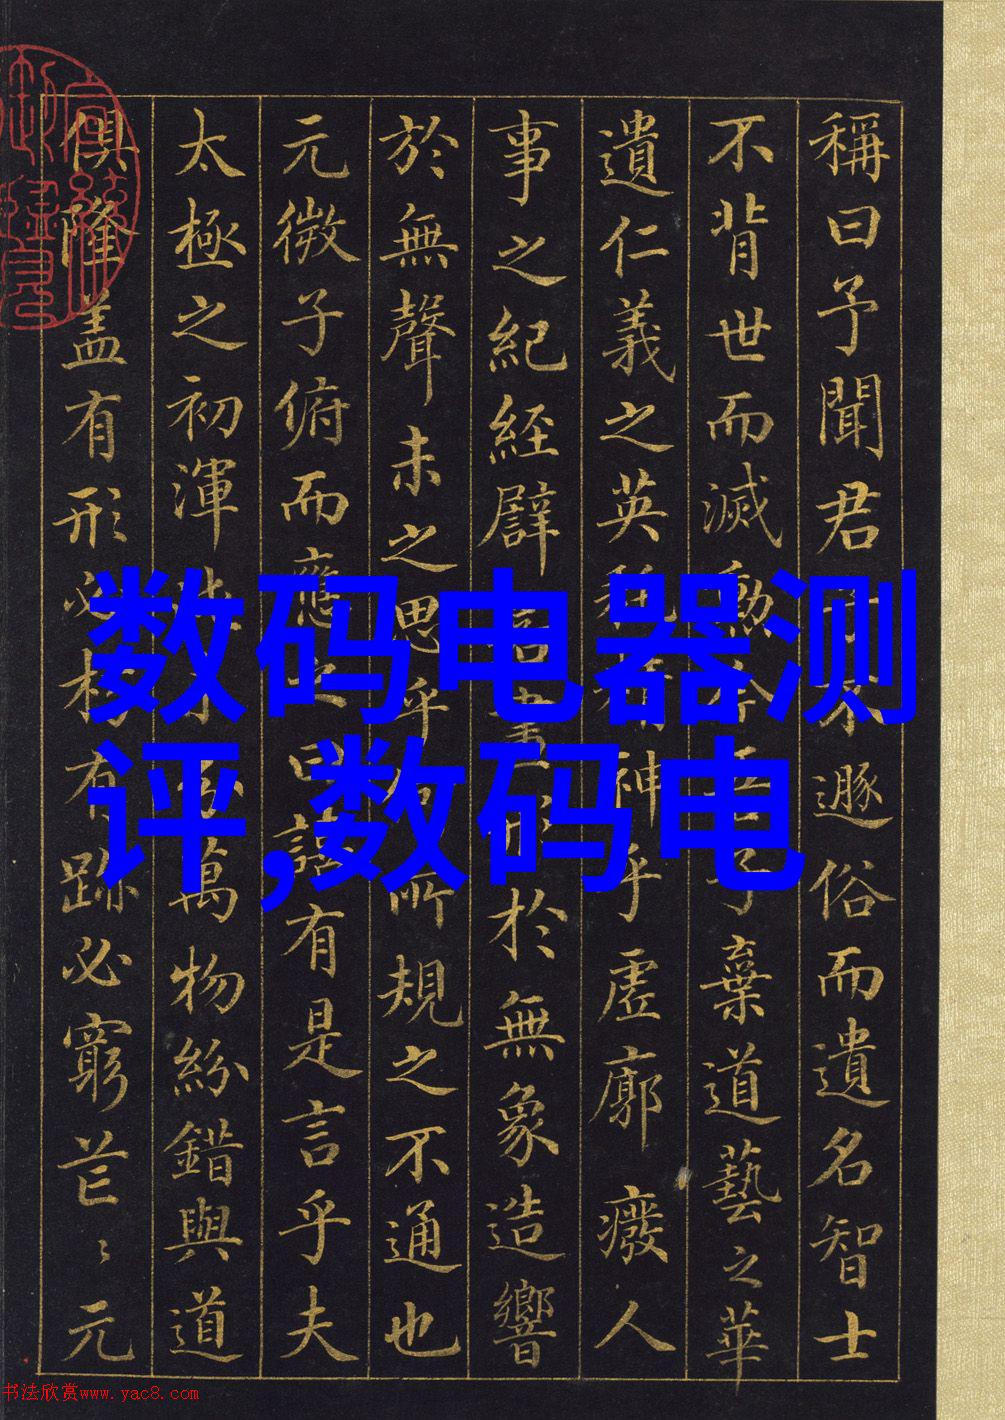 稱曰予聞君子不遯俗而遺名智士
不背世而滅勳今
棄道藝之華
遺仁義之英
神乎虛廓廢人
事之紀經譬
於無象造響
於無聲未之思乎
所規之不通也
元微子俯而應之曰
有是言乎夫
太極之初渾
萬物紛錯與道
俱隆盖有形必朽有跡必窮茫〻元
数码电器测
评,数码电
书法欣赏www.yac8.com